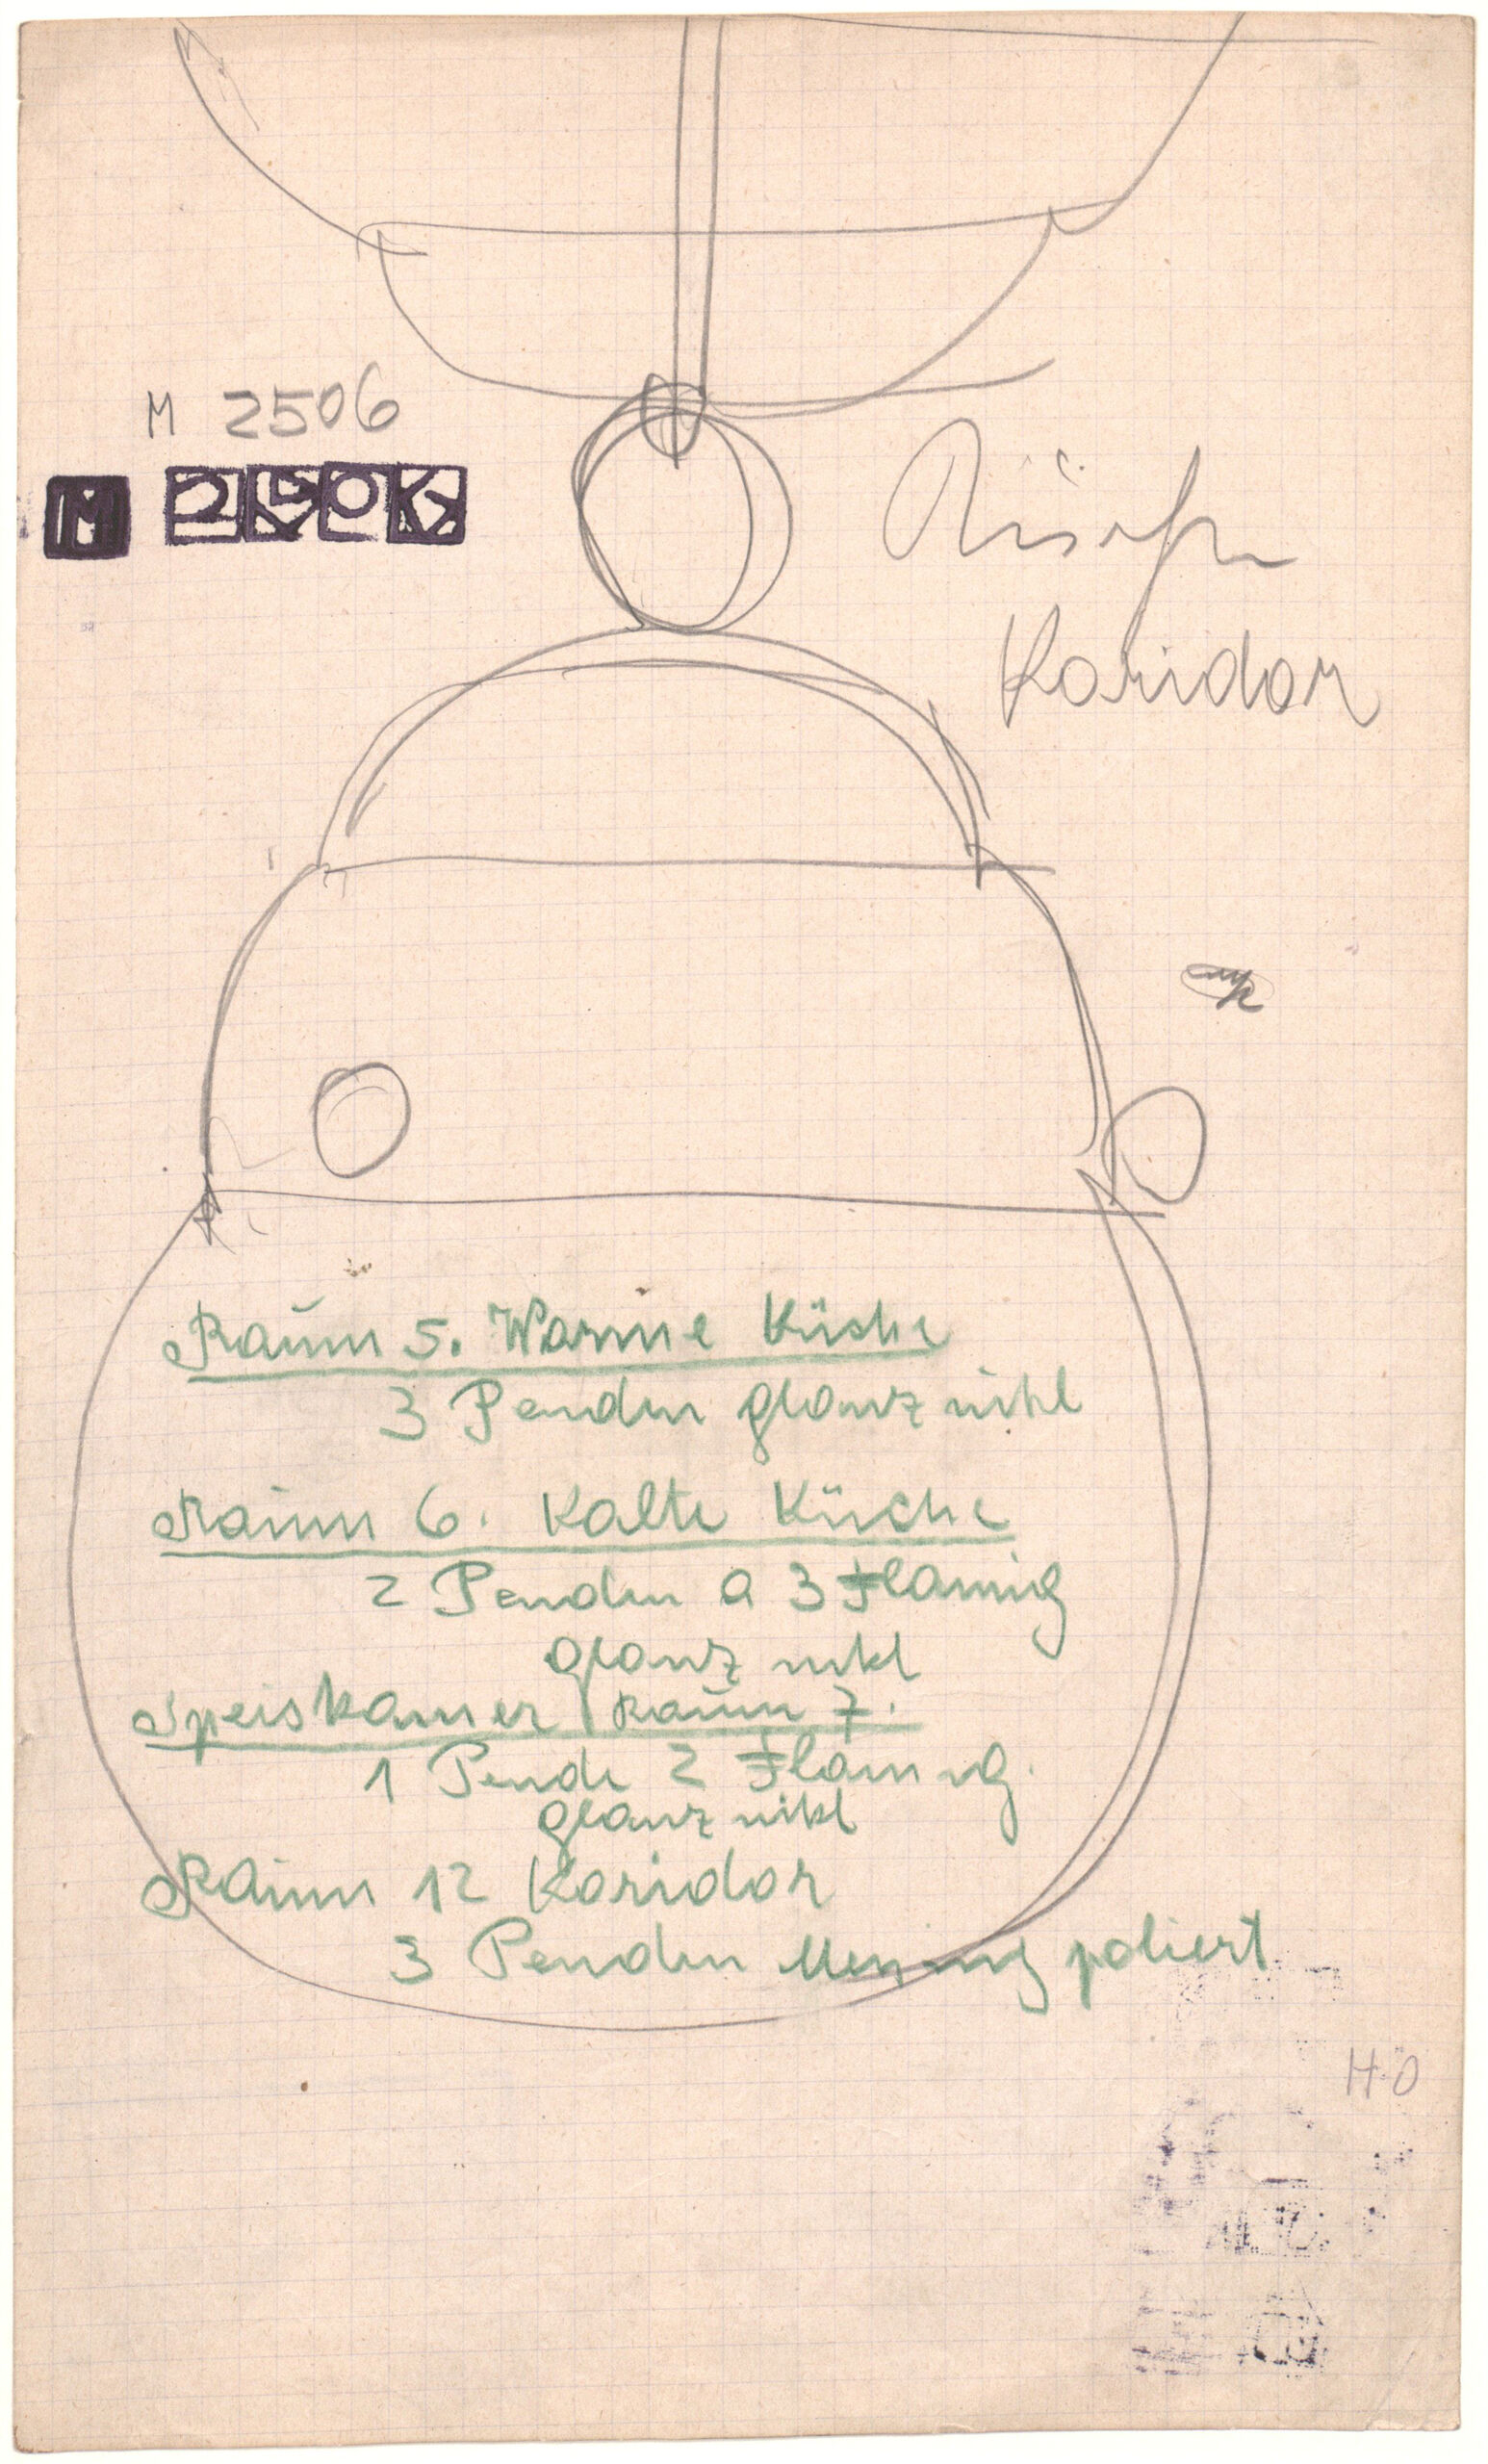 M 2506
M 2506
Koridor
Raum 5. Warme Küche
3 Pendln glanz nikl
Raum 6. Kalte Küche
2 Pendln a 3 Flamig
glanz nikl
Speiskamer / Raum 7.
1 Pendl 2 Flamig.
glanz nikl
Raum 12 Koridor
3 Pendln Messing poliert
H.O